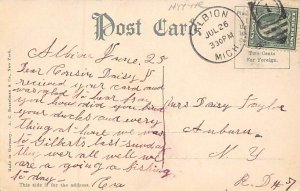 Post Card
ALBION
JUL 26
330PM
MICH.
Two Cents
For Foreign.
Albion June, 25
Dear Cousin Daisy I
received your card and
was glad to hear from
you how did you find
your ducks and every
thing at home we was
to Gilberts last sunday
they wer all well we
are a going a fishing
to day - Ora
Mrs Daisy Taylor
Auburn
N Y
R.D.
This side is for the address
Made in Germany. A. C. Bosselman & Co., New York.